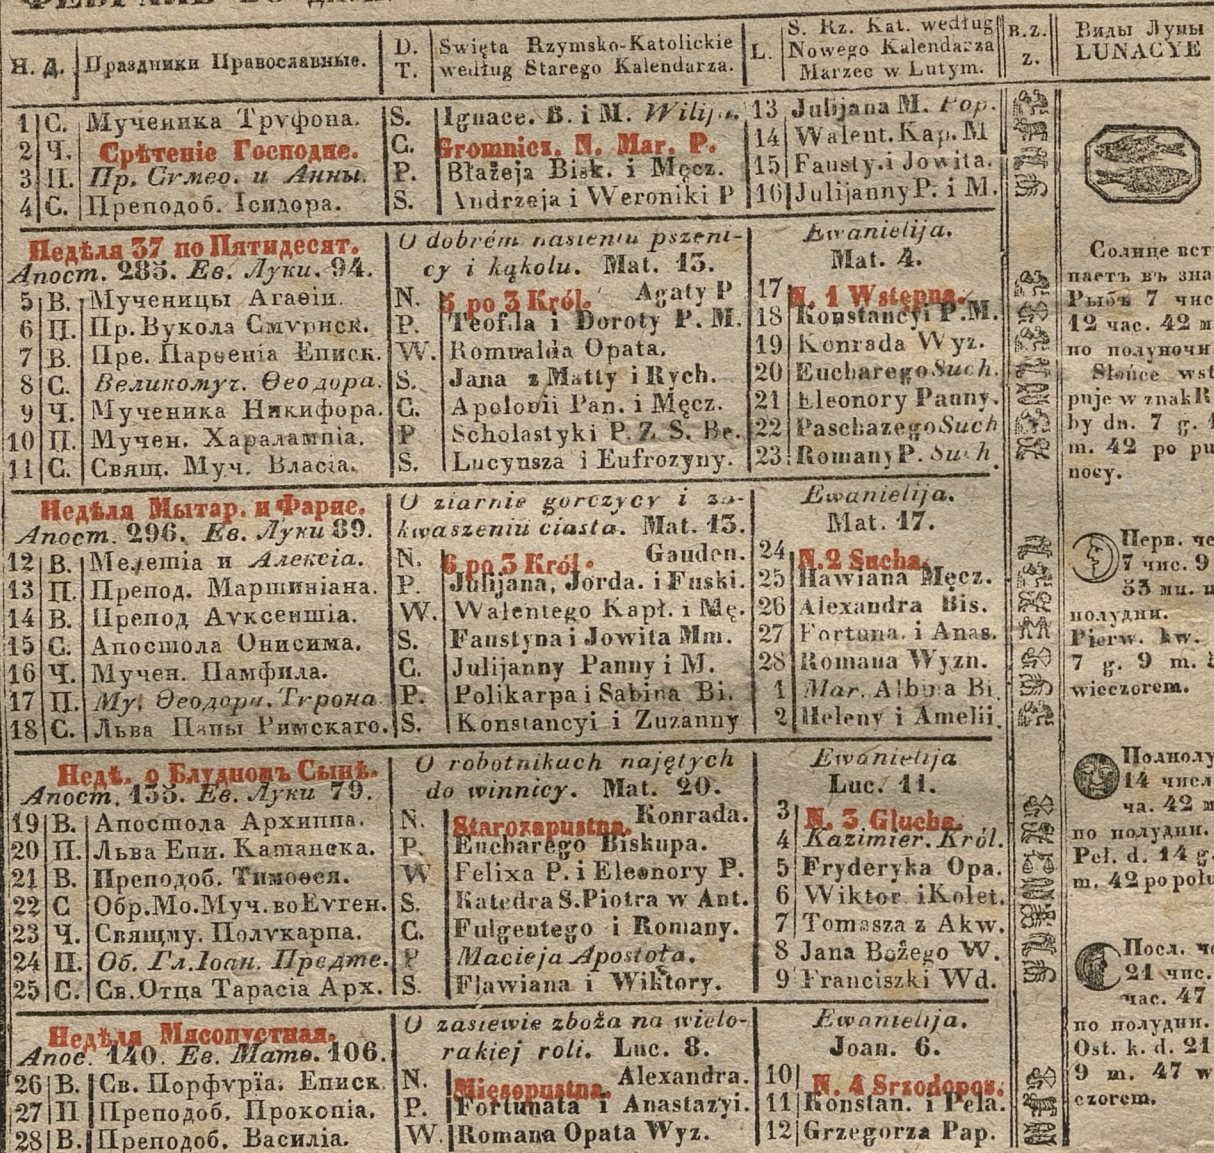 Н. Д. Праздники Православные. D. T. Święta Rzymsko-Katolickie według Starego Kalendarza. L. S. Rz. Kat. według Nowego Kalendarza Marzec w Lutym. B.Z. z. Виды Луны LUNACYE
1 С. Мученика Труфона. S. Ignace. B. i M. 13 Julijana M. Pop.
2 Ч. Срѣтеніе Господне. C. Gromnicz. N. Mar. P. 14 Walent. Kap. M
3 П. Пр. Сѵмео. и Анны. P. Błażeja Bisk. i Męcz. 15 Fausty. i Jowita.
4 С. Преподоб. Ісидора. S. Andrzeja i Weroniki P 16 Julijanny P. i M.
Недѣля 37 по Пятидесят. O dobrém nasieniu pszeni- Ewanielija.
Апост. 285. Ев. Луки. 94. cy i kąkolu. Mat. 13. Mat. 4.
5 В. Мученицы Агаѳіи. N. 5 po 3 Król. Agaty P 17 N. 1 Wstępna.
6 П. Пр. Вукола Смурнск. P. Teofila i Doroty P. M. 18 Konstancyi P. M.
7 В. Пре. Парѳенія Еписк. W. Romualda Opata. 19 Konrada Wyz.
8 С. Великомуч. Ѳеодора. S. Jana z Matty i Rych. 20 Eucharego Such.
9 Ч. Мученика Никифора. C. Apolonii Pan. i Męcz. 21 Eleonory Panny.
10 П. Мучен. Харалампіа. P Scholastyki P. Z. S. Be. 22 Paschazego Such
11 С. Свящ. Муч. Власіа. S. Lucyusza i Eufrozyny. 23 Romany P. Such
Недѣля Мытар. и Фарис. O ziarnie gorczycy i za- Ewanielija.
Апост. 296. Ев. Луки 89. kwaszeniu ciasta. Mat. 13. Mat. 17.
12 В. Мелетіа и Алексіа. N. 6 po 3 Król. Gauden. 24 N. 2 Sucha.
13 П. Препод. Мартиніана. P. Julijana, Jorda. i Fuski. 25 Hawiana Męcz.
14 В. Препод Ауксентіа. W. Walentego Kapł. i Mę. 26 Alexandra Bis.
15 С. Апостола Онисима. S. Faustyna i Jowita Mm. 27 Fortuna. i Anas.
16 Ч. Мучен. Памфила. C. Julijanny Panny i M. 28 Romana Wyzn.
17 П. Му. Ѳеодора. Тѵрона P. Polikarpa i Sabina Bi. 1 Mar. Albina Bi.
18 С. Льва Папы Римскаго. S. Konstancyi i Zuzanny 2 Heleny i Amelii.
Недѣ. о Блудномъ Сынѣ. O robotnikach najętych Ewanielija
Апост. 135. Ев. Луки 79. do winnicy. Mat. 20. Luc. 11.
19 В. Апостола Архиппа. N. Starozapustna. Konrada. 3 N. 3 Głucha.
20 П. Льва Епи. Катанска. P. Eucharego Biskupa. 4 Kazimier. Król.
21 В. Преподоб. Тимоѳея. W Felixa P. i Eleonory P. 5 Fryderyka Opa.
22 С Обр. Мо. Муч. во Евген. S. Katedra S. Piotra w Ant. 6 Wiktor. i Kolet.
23 Ч. Свящму. Полукарпа. C. Fulgentego i Romany. 7 Tomasza z Akw.
24 П. Об. Гл. Іоан. Предте. P Macieja Apostoła. 8 Jana Bożego W.
25 С. Св. Отца Тарасіа Арх. S. Flawiana i Wiktory. 9 Franciszki Wd.
Недѣля Мясопустная. O zasiewie zboża na wielo- Ewanielija.
Апос. 140. Ев. Матѳ. 106. rakiej roli. Luc. 8. Joan. 6.
26 В. Св. Порфурїа. Еписк N. Mięsopustna. Alexandra. 10 N. 4 Srzodopos.
27 П Преподоб. Прокопіа. P. Fortunata i Anastazyi. 11 Konstan. i Pela.
28 В. Преподоб. Василіа. W. Romana Opata Wyz. 12 Grzegorza Pap.
Солнце вст
паетъ въ зна
Рыбъ 7 чис
12 час. 42 м
по полуночи
Słońce wst
puje w znak R
by dn. 7 g.
m. 42 po pu
nocy.
Перв. че
7 чис. 9
53 ми. п
полудни.
Pierw. kw.
7 g. 9 m.
wieczorem.
Полнолу
14 числ
ча. 42 м
по полудни.
Peł. d. 14 g.
m. 42 po połu
Посл. че
21 чис.
час. 47
по полудни.
Ost. k. d. 21
9 m. 47 w
czorem.